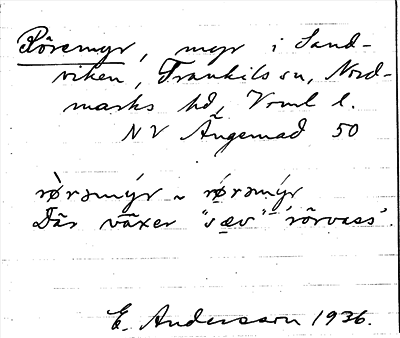 Röremyr, myr i Sand-
viken, Trankils sn, Nord-
marks hd, Vrml l.
NV Ängemad 50
rø̀rəmýr ~ rø̀rəmýr
Där växer "sæv" 'rörvass'.
E. Andersson 1936.